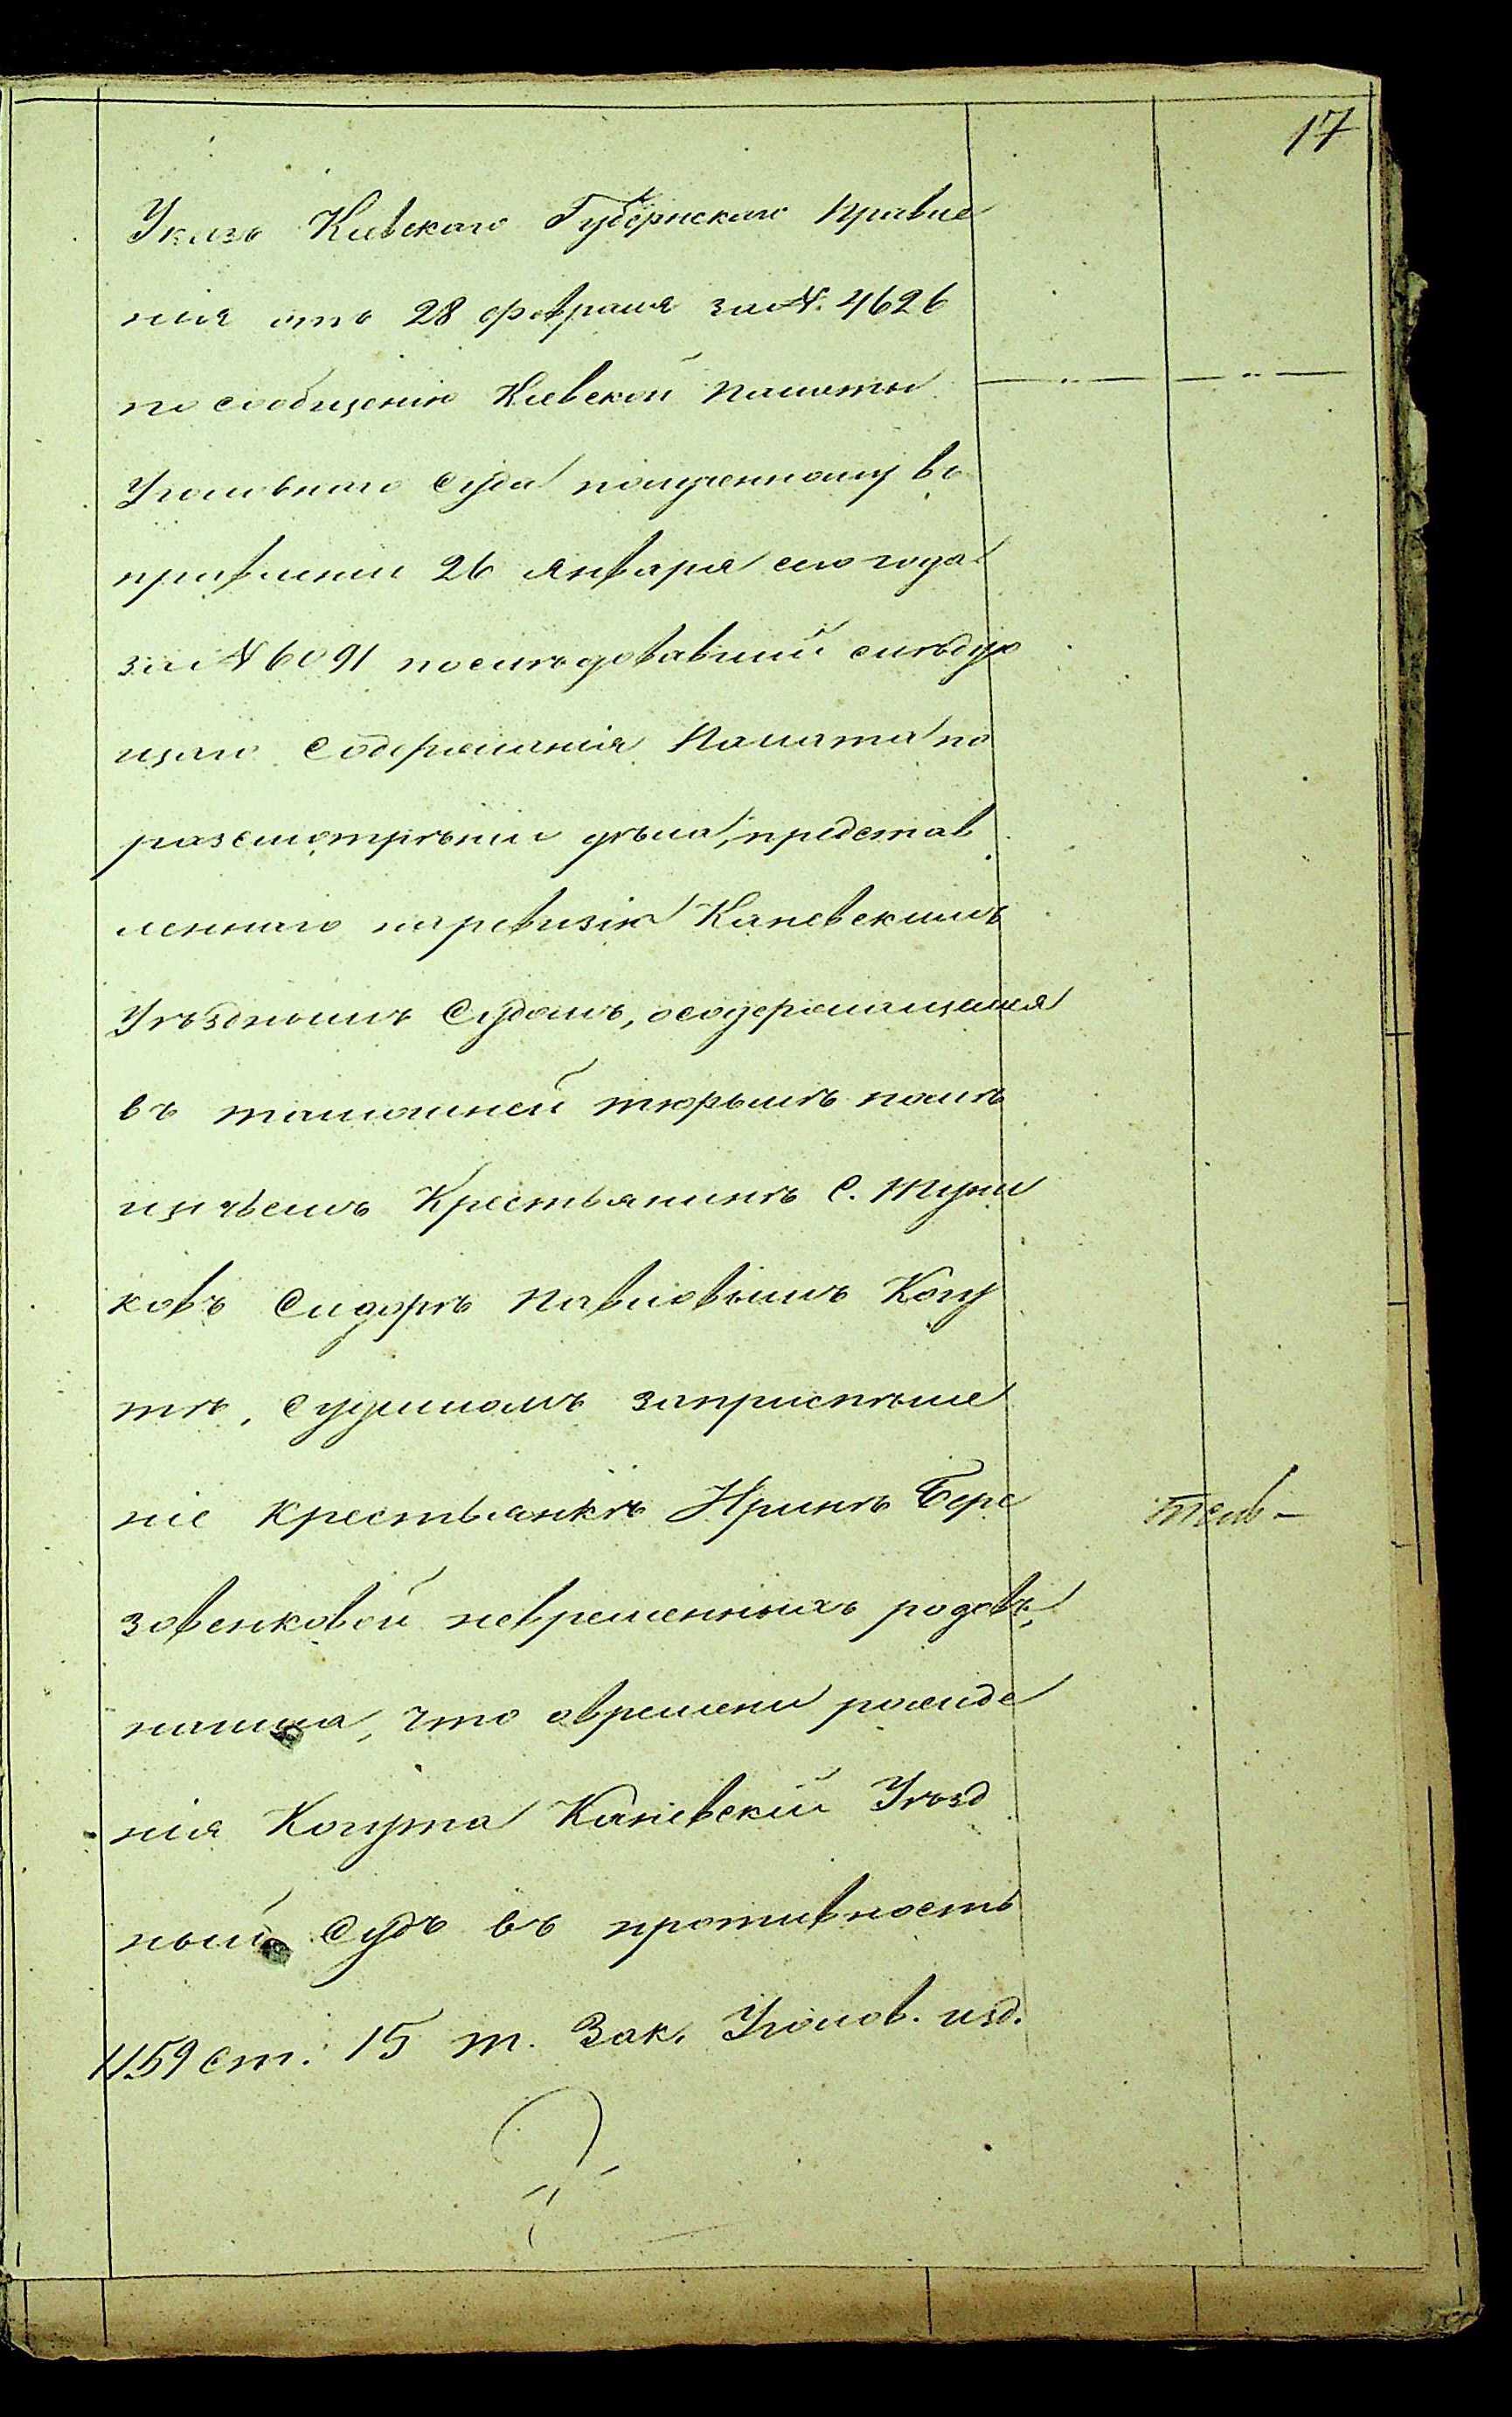 17
Указъ Кіевскаго Губернскаго Правле
нія отъ 28 февраля за №. 4626
по сообщенію Кіевской Палаты
Уголовнаго Суда полученному въ
правленіи 26 Января сего года
за № 6091 послѣдовавшій слѣдую
щаго Содержанія Палата по
разсмотрѣніи дѣла, представ
леннаго на ревизію Каневскимъ
Уѣзднымъ Судомъ, о содержащимся
въ тамошней тюрьмѣ помѣ
щичьемъ Крестьянинѣ С.
ковъ Сидорѣ Павловымъ Когу
тѣ, Судимомъ за причиненіе
ніе Крестьянкѣ Иринѣ Бере
зовенковой невременныхъ родовъ,
нашла, что о времени рожде
нія Когута Каневскій Уѣзд
ный Судъ въ противность
1159 ст. 15 т. Зак. Уголов. изд.